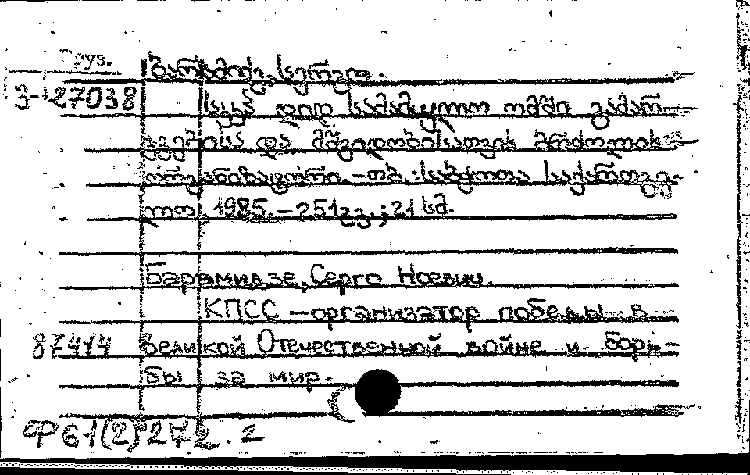 Груз.
ბარამიძე, სერგო.
3-27038
სკკპ დიდ სამამულო ომში გამარ-
ჯვებისა და მშვიდობისათვის ბრძოლის
ორგანიზატორი. – თბ.: საბჭოთა საქართვე-
ლო, 1985. – 251 გვ.; 21 სმ.
Барамидзе, Серго Ноевич.
КПСС – организатор победы в
87414 Великой Отечественной войне и борь-
бы за мир.
Ф61(2)272.2